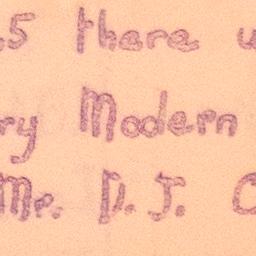 .5 there
ry Modern
Mr. D. J. C